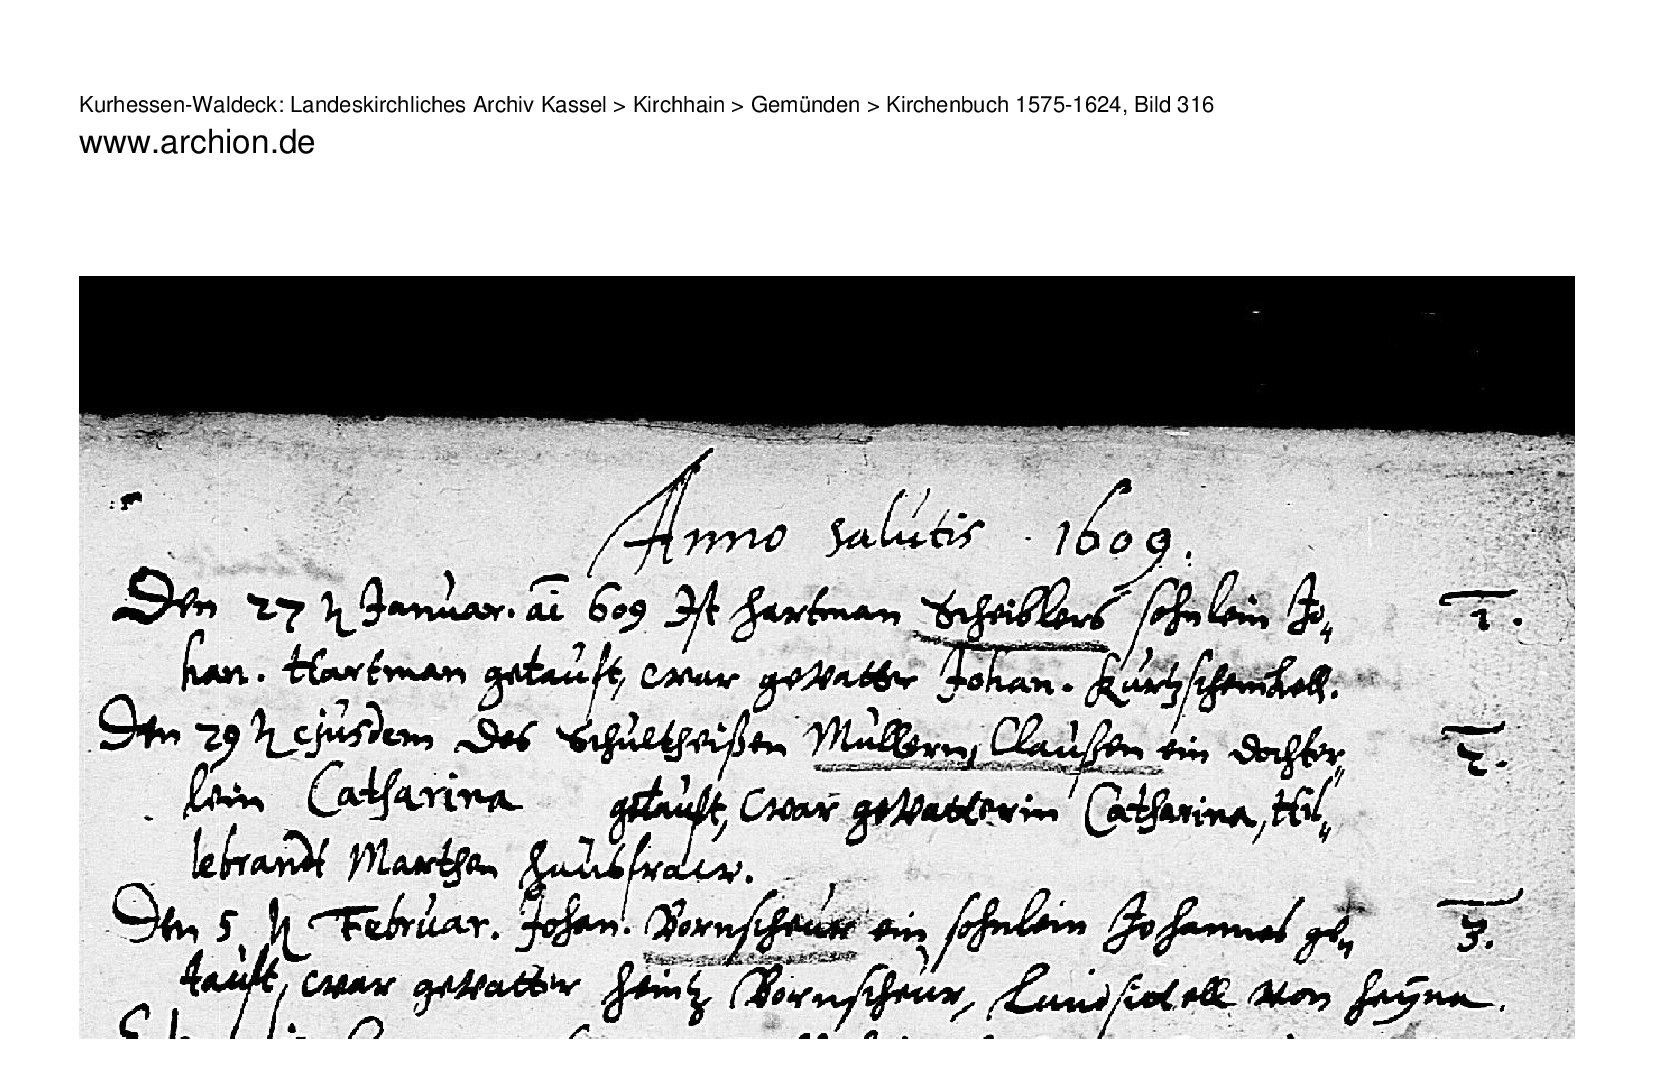 Kurhessen-Waldeck: Landeskirchliches Archiv Kassel > Kirchhain > Gemünden > Kirchenbuch 1575-1624, Bild 316
www.archion.de
Anno salutis . 1609.
Den 27 Januar. ai 609 Ist Hartman Scheiblers sohnlein Jo„ 1.
han. Hartman getauft, war gevatter Johan.
Den 29 ejusdem des Schultheißen Müllern, Claußen ein dochter„ 2.
lein Catharina getauft, war gevatterin Catharina, Hil„
lebrandt Marthen hausfraw.
Den 5 Februar. Johan. Bornscheuer ein sohnlein Johannes ge„ 3.
tauft, war gevatter Heintz Bornscheur, von Heyna.